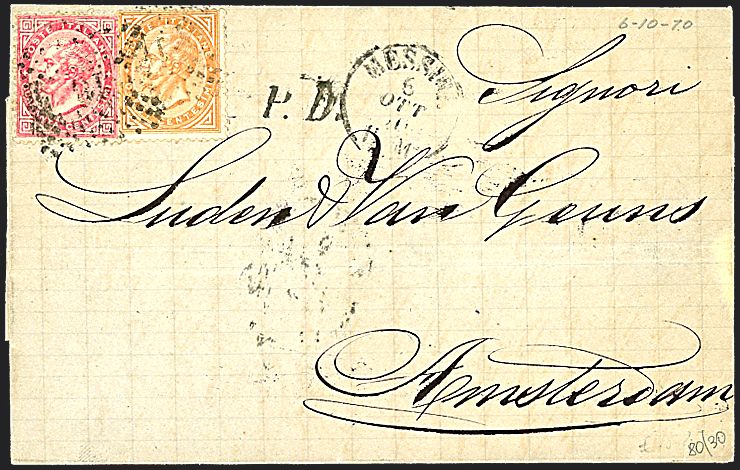 6-10-70
POSTE ITALIANE
P. D.
MESSINA
6
OTT
70
M
Signori
Luden & Van Geuns
Amsterdam
80/30